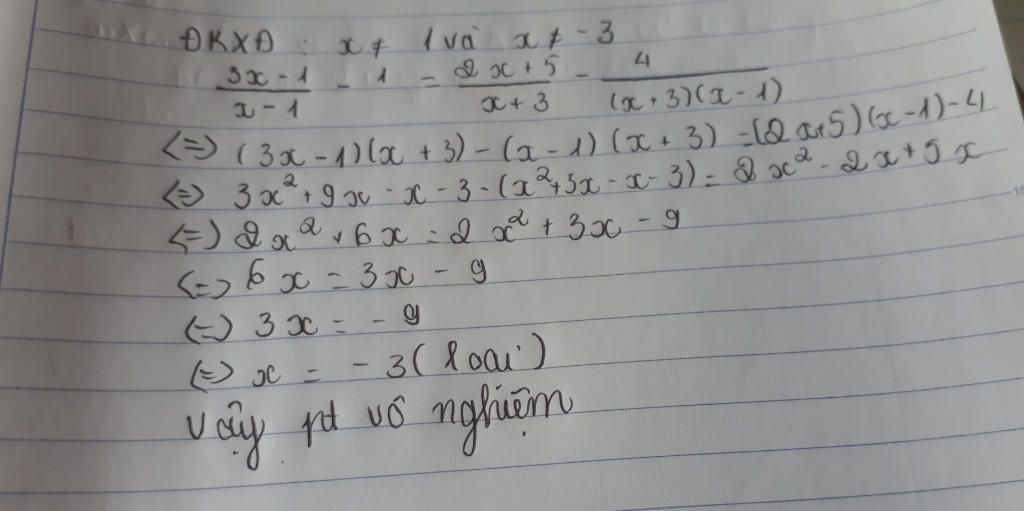 ĐKXĐ : x ≠ 1 và x ≠ -3
\frac{3x-1}{x-1} - 1 = \frac{2x+5}{x+3} - \frac{4}{(x+3)(x-1)}
<=> (3x-1)(x+3) - (x-1)(x+3) = (2x+5)(x-1) - 4
<=> 3x² + 9x - x - 3 - (x² + 3x - x - 3) = 2x² - 2x + 5x
<=> 2x² + 6x = 2x² + 3x - 9
<=> 6x = 3x - 9
<=> 3x = -9
<=> x = -3 (loại)
Vậy pt vô nghiệm